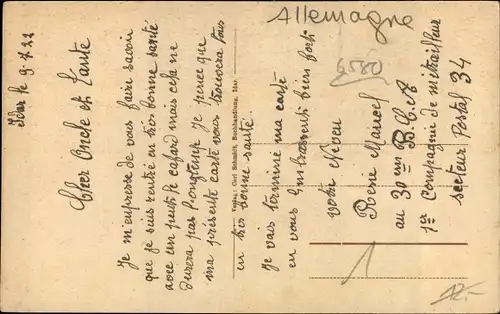 Allemagne
6580
Idar le 9.7.22
Cher Oncle et Tante
Je m'empresse de vous faire savoir
que je suis rentré en très bonne santé
avec un petit le cafard mais cela ne
durera pas longtemp je pense que
ma présente carte vous trouvera tous
en très bonne santé.
Je vais terminé ma carte
en vous embrassent bien fort
votre Neveu
Marcel
au 30 em B.C.A
1er Compagnie de mitrailleur
secteur Postal 34
Verlag: Carl Schmidt, Buchhandlung, Idar
1
12.-